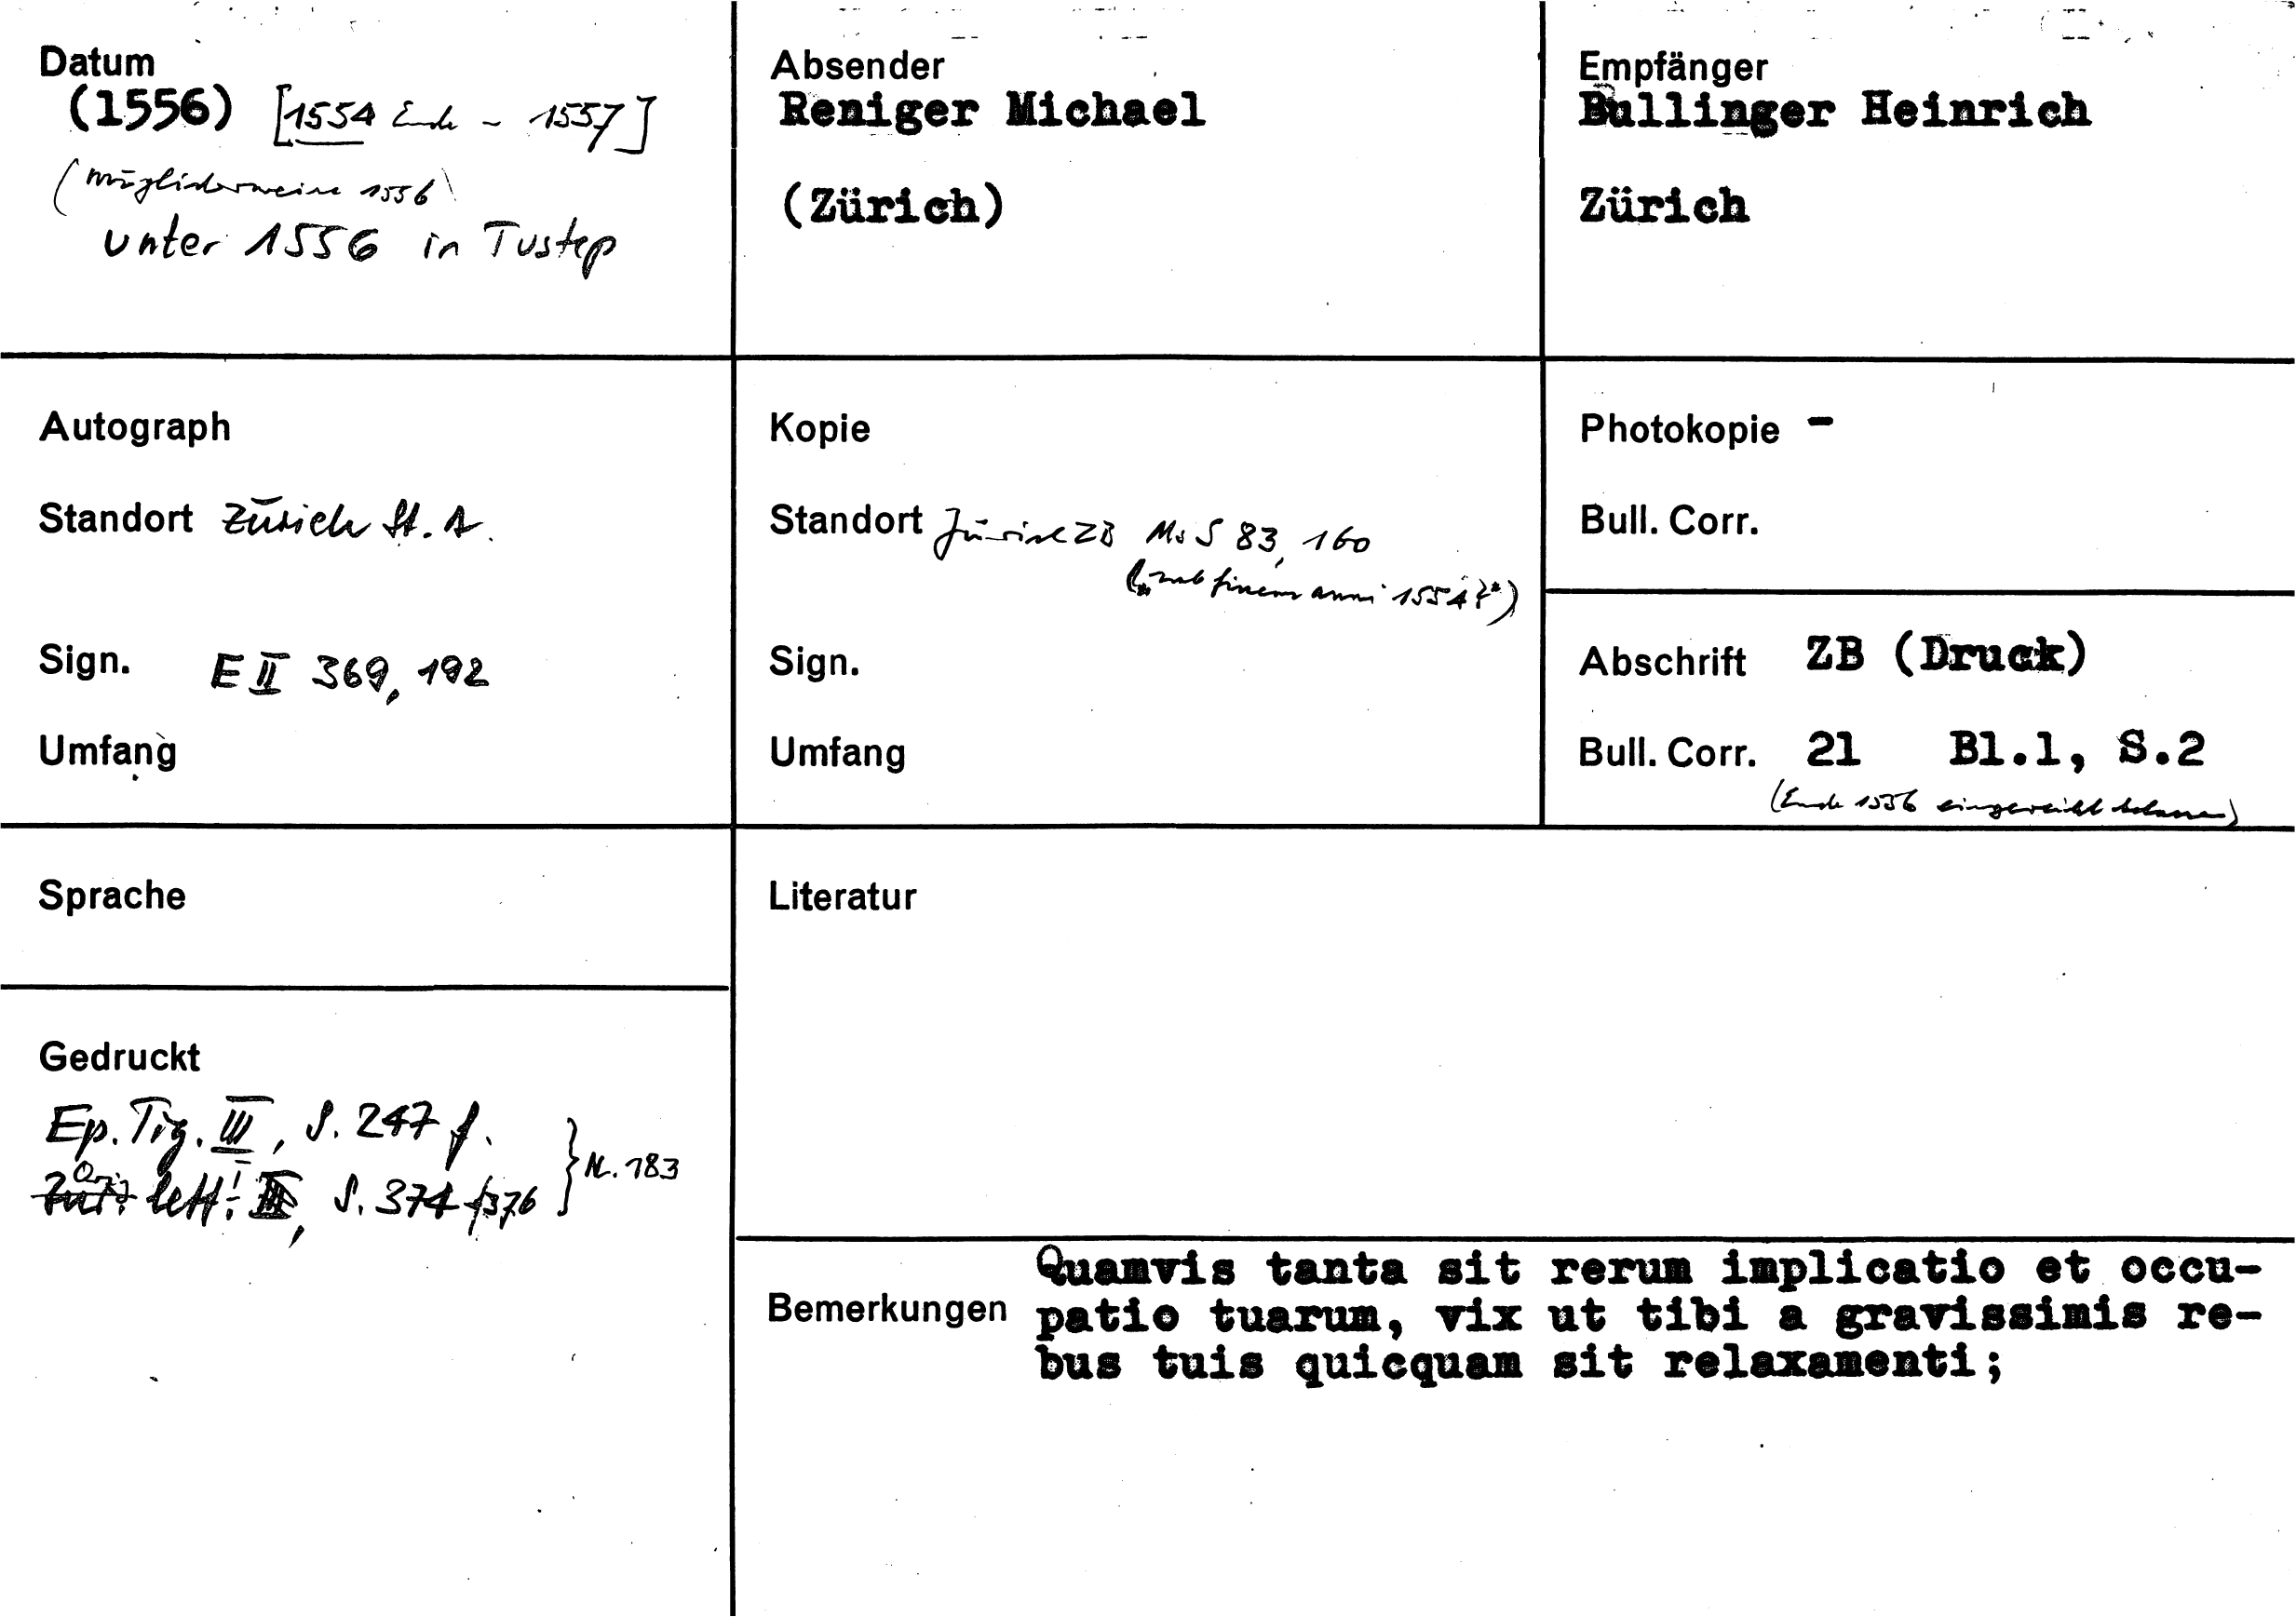 Datum
(1556) [1554 Ende - 1557]
(möglicherweise 1556)
unter 1556 in Tustep
Absender
Reniger Michael
(Zürich)
Empfänger
Bullinger Heinrich
Zürich
Autograph
Standort Zürich St. A.
Sign. E II 369, 192
Umfang
Kopie
Standort Zürich ZB Ms S 83, 160
("sub finem anni 1554?")
Sign.
Umfang
Photokopie -
Bull. Corr.
Abschrift ZB (Druck)
Bull. Corr. 21 Bl.1, S.2
(Ende 1556 eingereiht)
Sprache
Gedruckt
Ep. Tig. III, S. 247 f.
Orig. lett. S. 374-376
} N. 183
Literatur
Bemerkungen
Quamvis tanta sit rerum implicatio et occu-
patio tuarum, vix ut tibi a gravissimis re-
bus tuis quicquam sit relaxamenti;